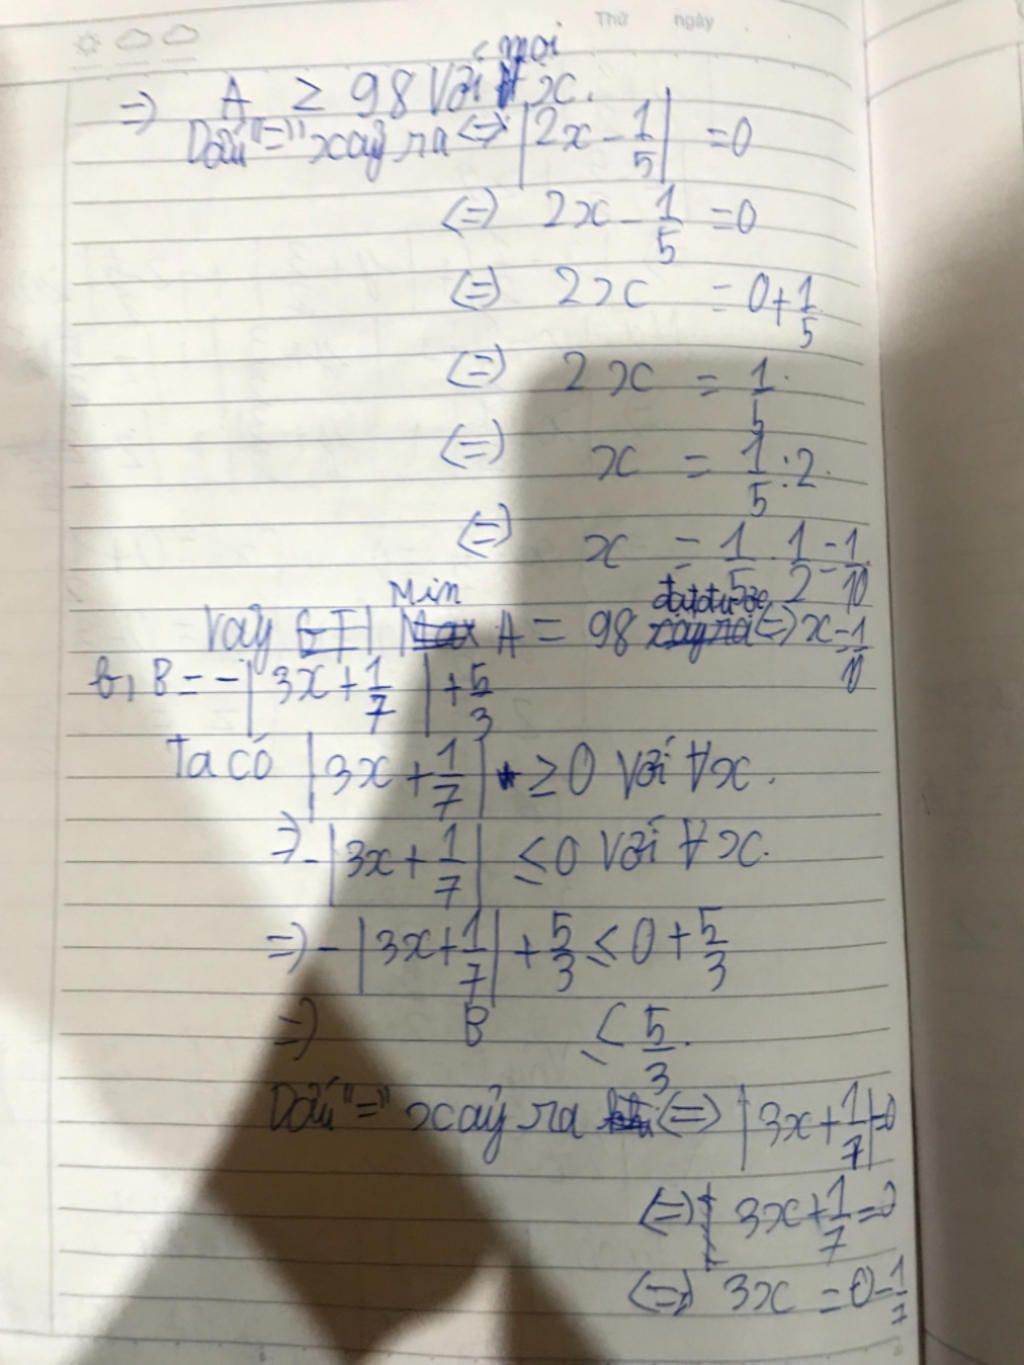 Thứ ngày
mọi
=> A ≥ 98 Với ∀ x.
Dấu "=" xảy ra <=> |2x - 1/5| = 0
<=> 2x - 1/5 = 0
<=> 2x = 0 + 1/5
<=> 2x = 1/5
<=> x = 1/5 : 2
<=> x = 1/5 . 1/2 = 1/10
Min đạt được
Vậy GTN Max A = 98 xảy ra <=> x = 1/10
b, B = -|3x + 1/7| + 5/3
Ta có |3x + 1/7| ≥ 0 Với ∀x.
=> -|3x + 1/7| ≤ 0 Với ∀x.
=> -|3x + 1/7| + 5/3 ≤ 0 + 5/3
=> B ≤ 5/3.
Dấu "=" xảy ra <=> |3x + 1/7| = 0
<=> 3x + 1/7 = 0
<=> 3x = 0 - 1/7